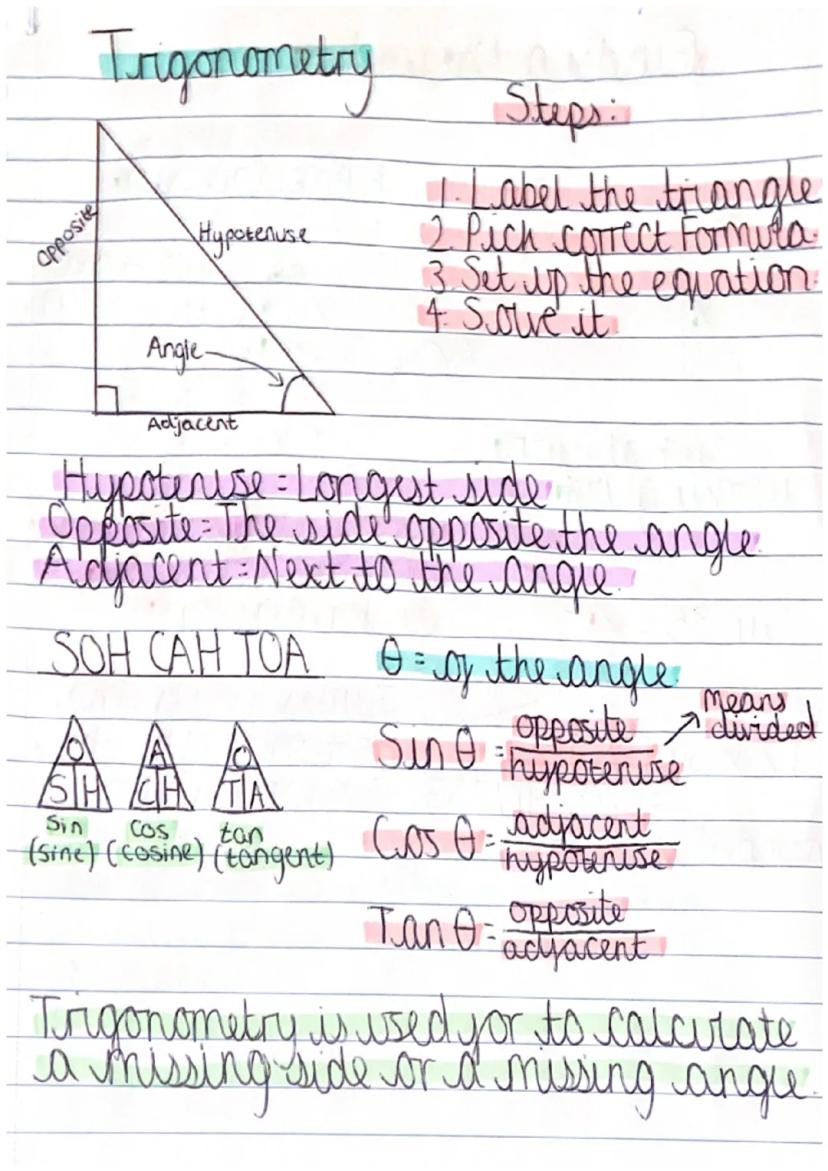 Trigonometry
Steps:
1. Label the triangle
2. Pick correct Formula.
3. Set up the equation
4. Solve it
Opposite
Hypotenuse
Angle
Adjacent
Hypotenuse = Longest side
Opposite = The side opposite the angle.
Adjacent = Next to the angle.
SOH CAH TOA
θ = of the angle.
O
S H
A
C H
O
T A
sin
(sine)
cos
(cosine)
tan
(tangent)
Sin θ = opposite
hypotenuse
means
divided
Cos θ = adjacent
hypotenuse
Tan θ = opposite
adjacent
Trigonometry is used for to calculate
a missing side or a missing angle.